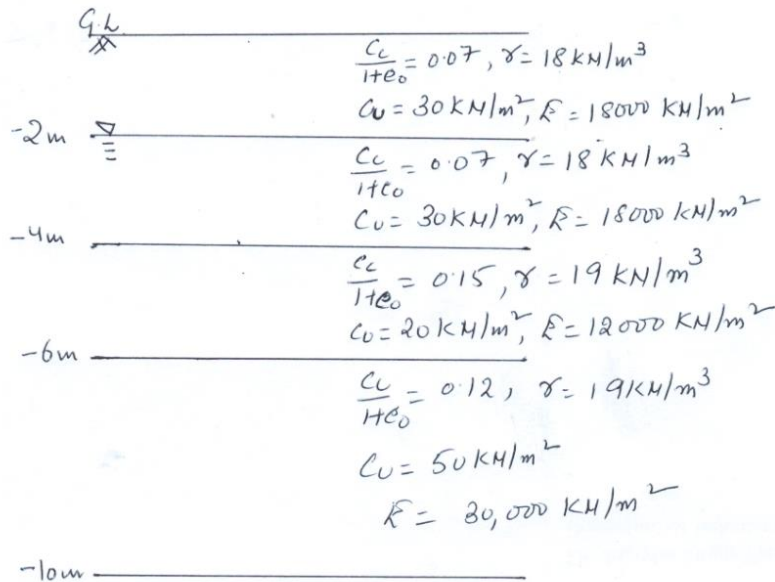 G.L
Cc/1+e₀ = 0.07, γ = 18 KN/m³
Cu = 30 KN/m², E = 18000 KN/m²
-2m
Cc/1+e₀ = 0.07, γ = 18 KN/m³
Cu = 30 KN/m², E = 18000 KN/m²
-4m
Cc/1+e₀ = 0.15, γ = 19 KN/m³
Cu = 20 KN/m², E = 12000 KN/m²
-6m
Cc/1+e₀ = 0.12, γ = 19 KN/m³
Cu = 50 KN/m²
E = 30,000 KN/m²
-10m